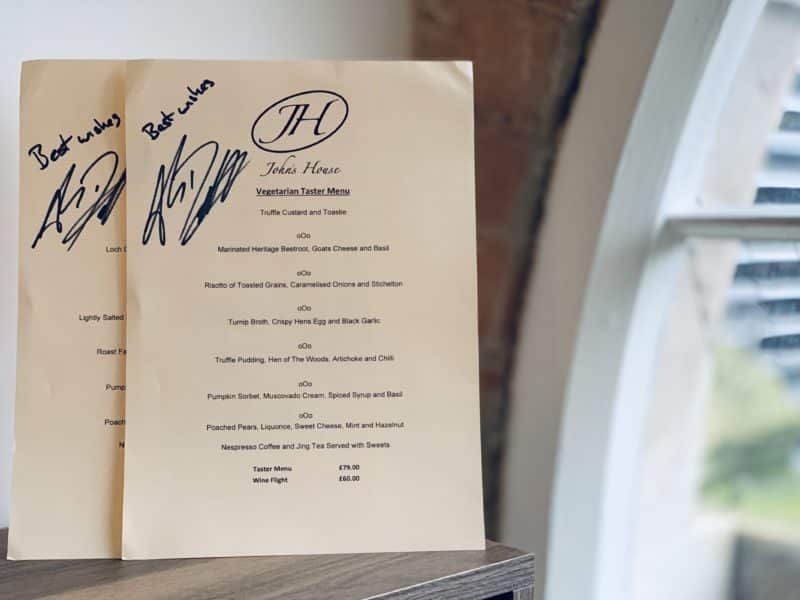 Best wishes
Loch
Lightly Salted
Roast
Pump
Poach
Best wishes
JH
John's House
Vegetarian Taster Menu
Truffle Custard and Toastie
oOo
Marinated Heritage Beetroot, Goats Cheese and Basil
oOo
Risotto of Toasted Grains, Caramelised Onions and Stichelton
oOo
Turnip Broth, Crispy Hens Egg and Black Garlic
oOo
Truffle Pudding, Hen of The Woods, Artichoke and Chilli
oOo
Pumpkin Sorbet, Muscovado Cream, Spiced Syrup and Basil
oOo
Poached Pears, Liquorice, Sweet Cheese, Mint and Hazelnut
Nespresso Coffee and Jing Tea Served with Sweets
Taster Menu £79.00
Wine Flight £60.00